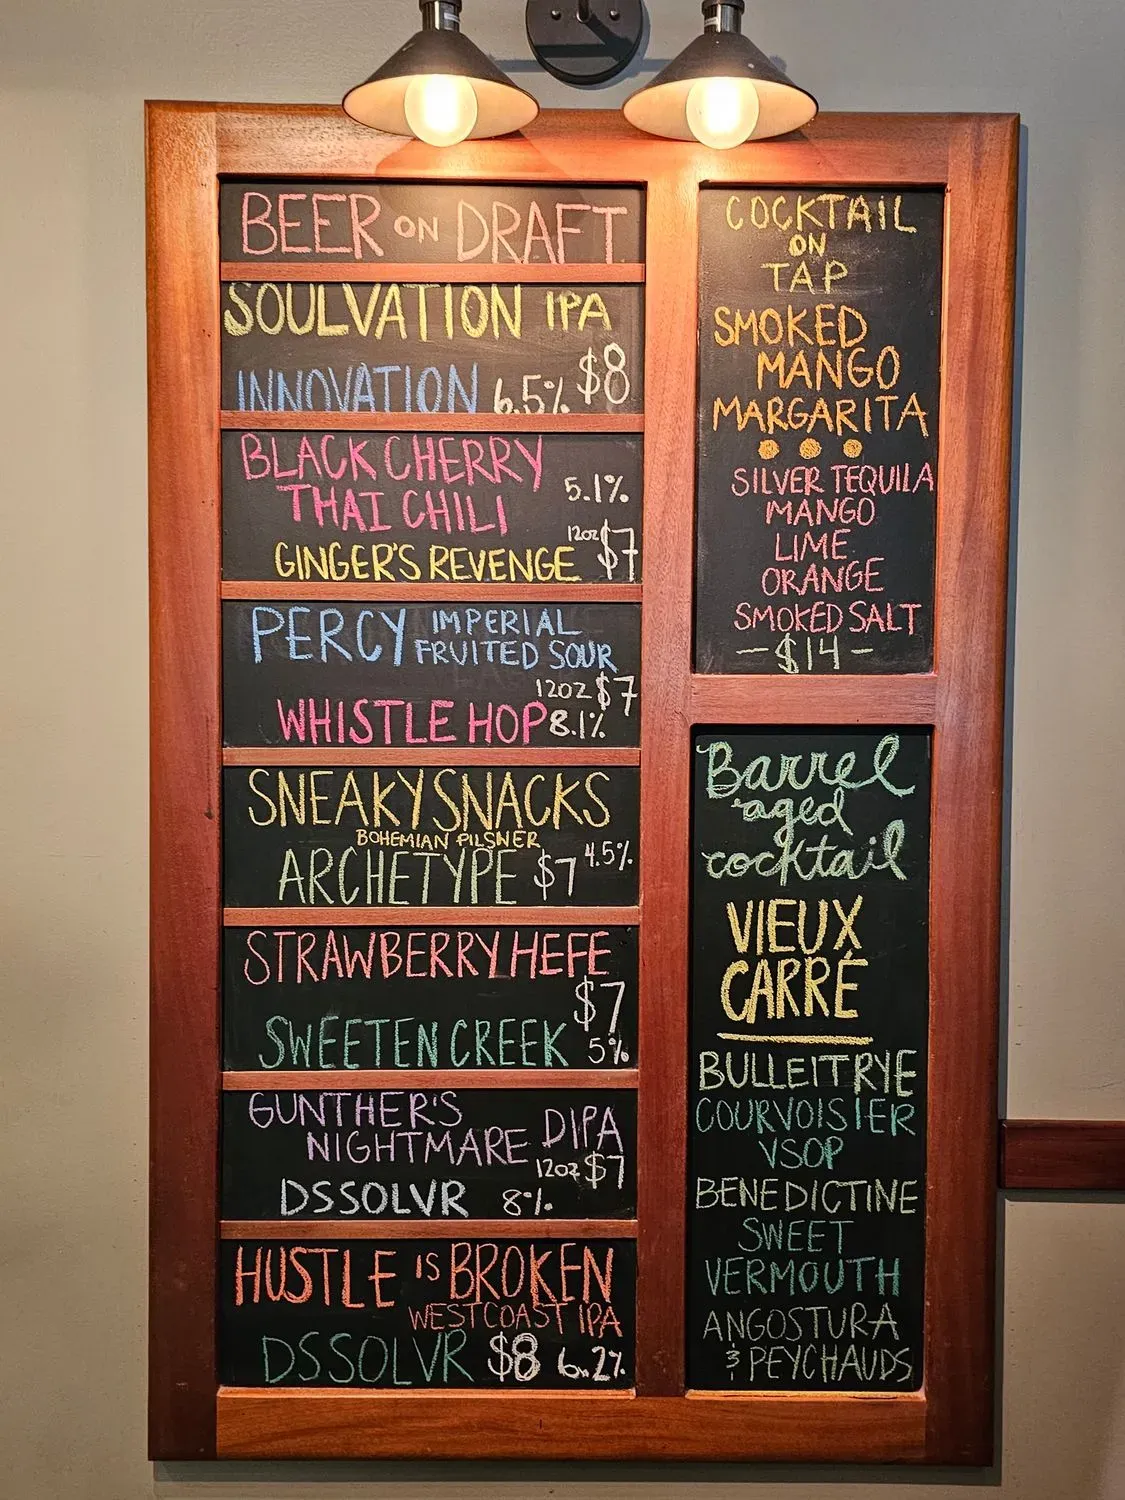 BEER ON DRAFT
SOULVATION IPA
$8
INNOVATION 6.5%
BLACK CHERRY
THAI CHILI
5.1%
12oz $7
GINGER'S REVENGE
PERCY IMPERIAL
FRUITED SOUR
12OZ $7
WHISTLE HOP 8.1%
SNEAKY SNACKS
BOHEMIAN PILSNER
ARCHETYPE $7 4.5%
STRAWBERRY HEFE
$7
SWEETEN CREEK 5%
GUNTHER'S
NIGHTMARE DIPA
12oz $7
DSSOLVR 8%
HUSTLE IS BROKEN
WEST COAST IPA
DSSOLVR $8 6.2%
COCKTAIL
ON
TAP
SMOKED
MANGO
MARGARITA
SILVER TEQUILA
MANGO
LIME
ORANGE
SMOKED SALT
- $14 -
Barrel
aged
cocktail
VIEUX
CARRÉ
BULLEIT RYE
COURVOISIER
VSOP
BENEDICTINE
SWEET
VERMOUTH
ANGOSTURA
& PEYCHAUDS